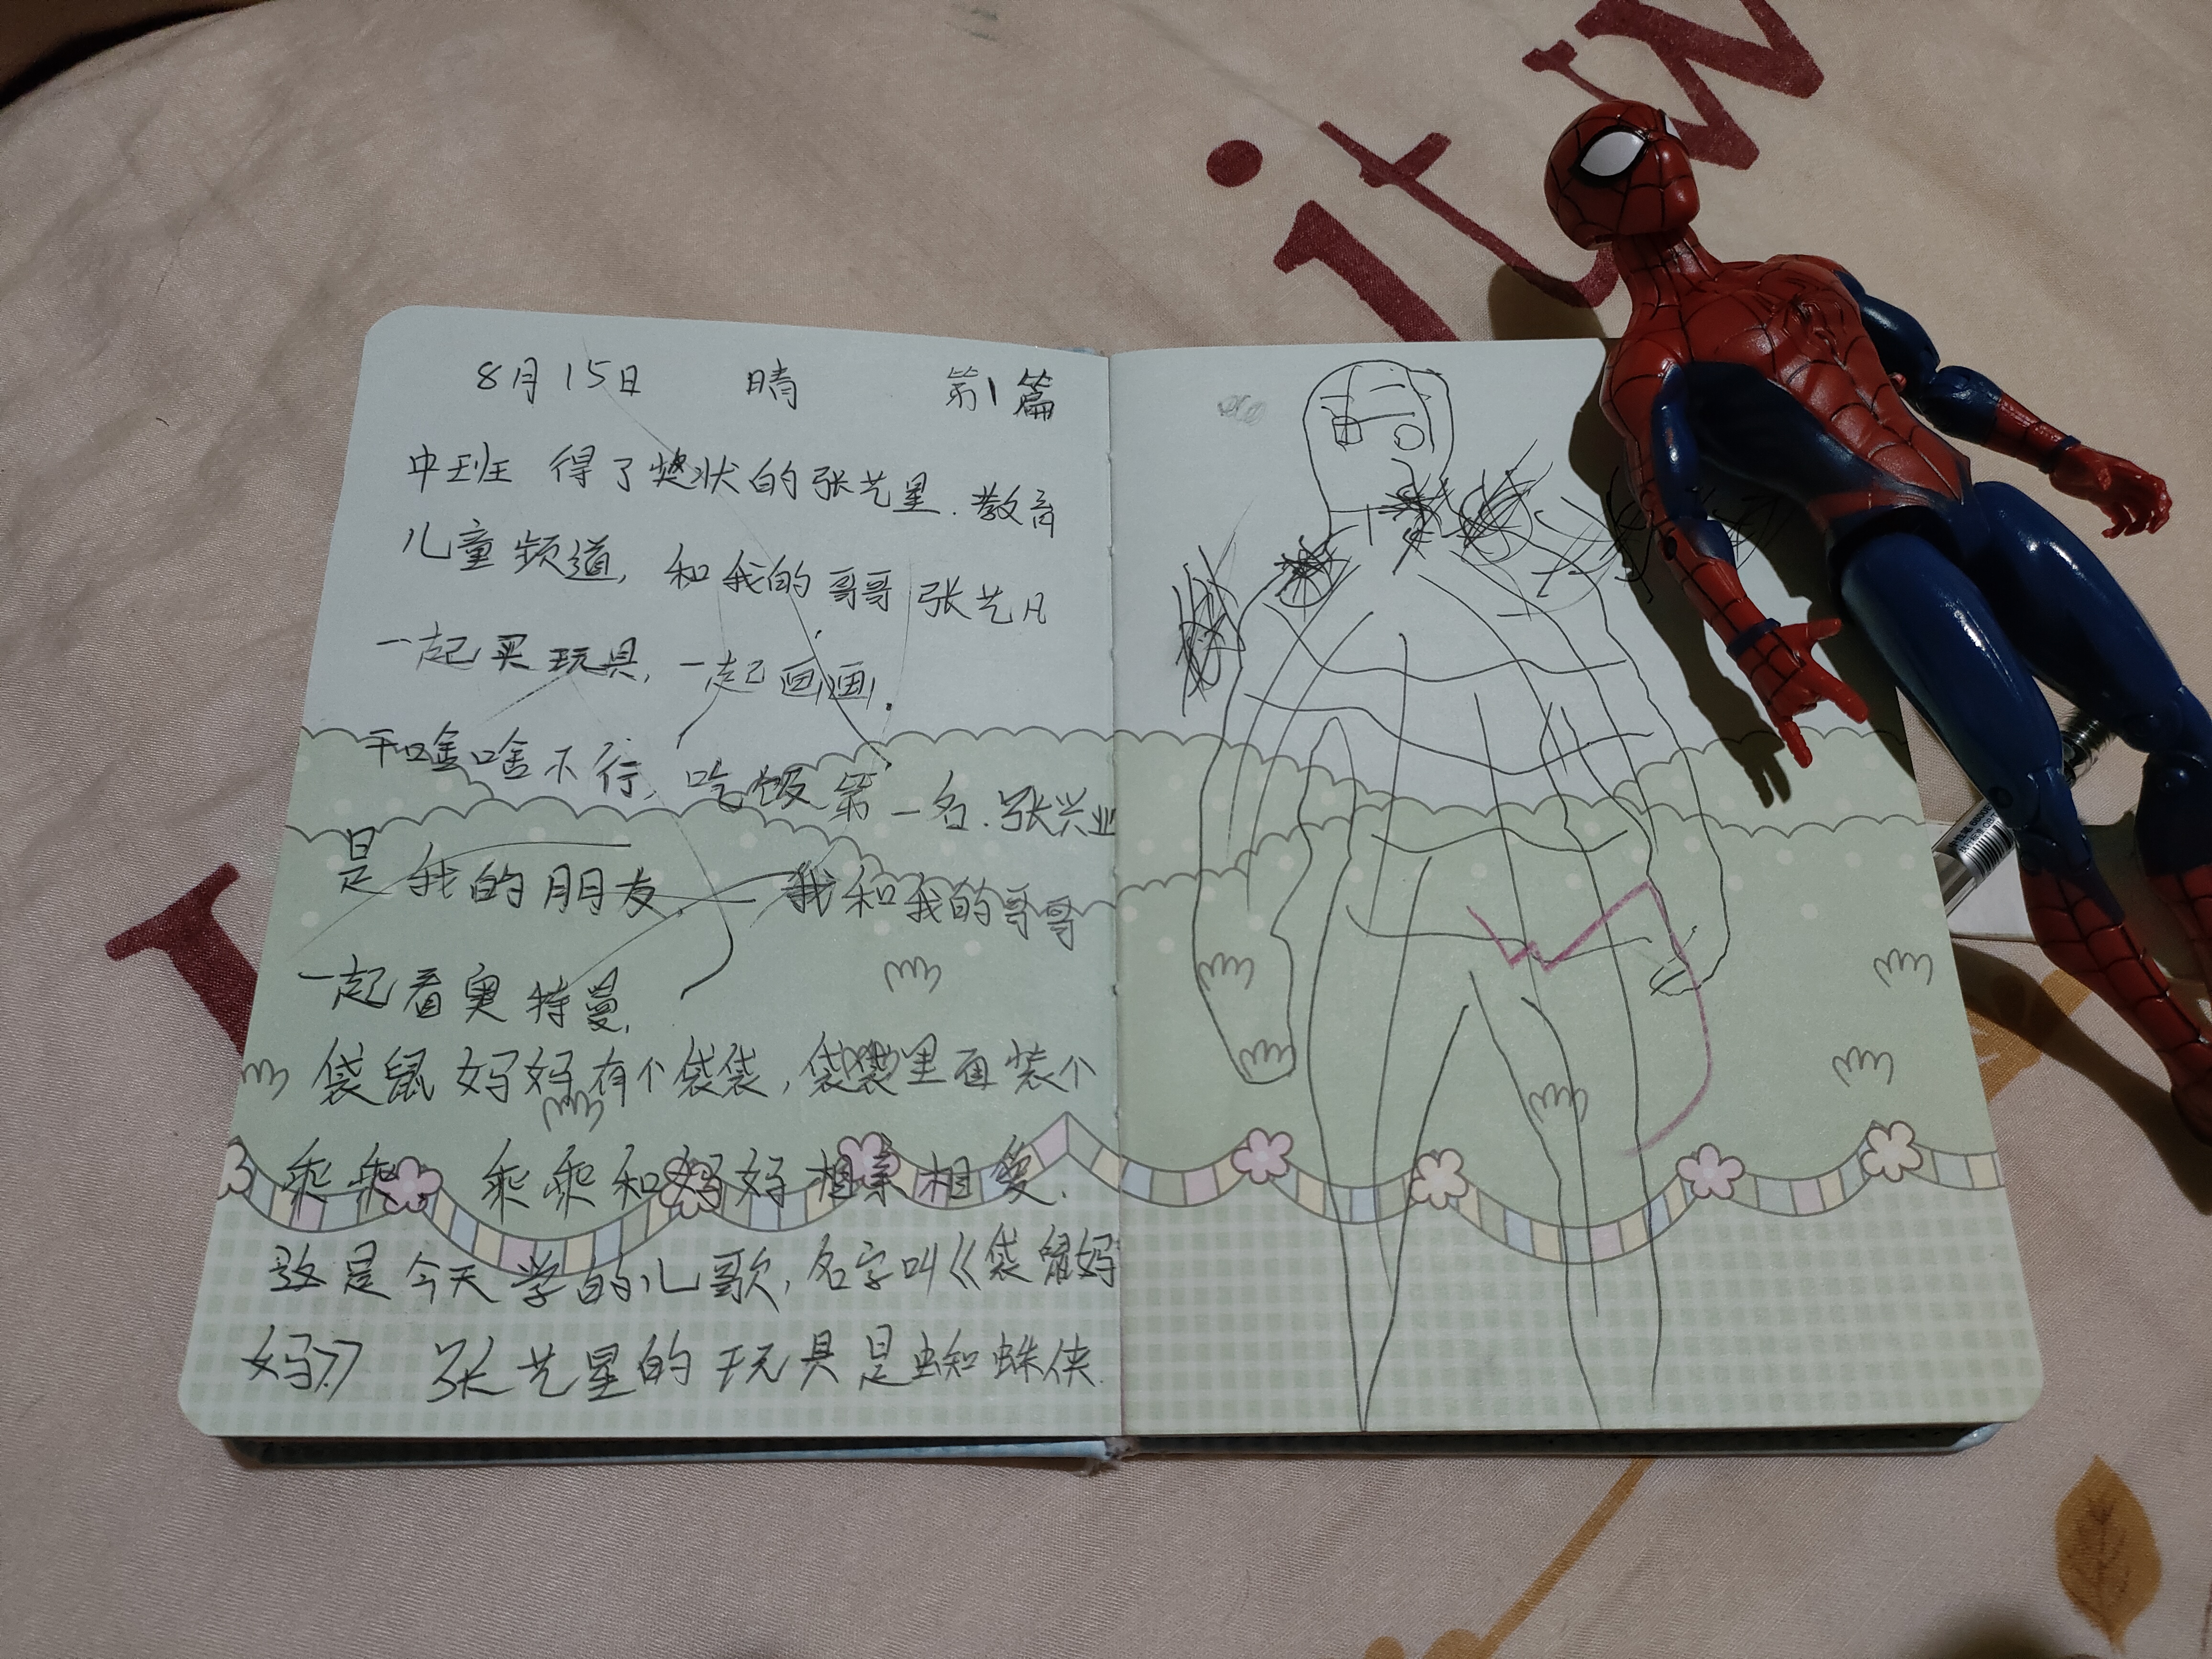 8月15日 晴 第1篇
中班 得了奖状的张艺星.教育
儿童频道,和我的哥哥张艺凡
一起买玩具,一起画画.
干啥啥不行,吃饭第一名.张兴业
是我的朋友. 我和我的哥哥
一起看奥特曼,
袋鼠妈妈有个袋袋,袋袋里面装个
乖乖 乖乖和妈妈相亲相爱.
这是今天学的儿歌,名字叫《袋鼠妈
妈》 张艺星的玩具是蜘蛛侠.
it w